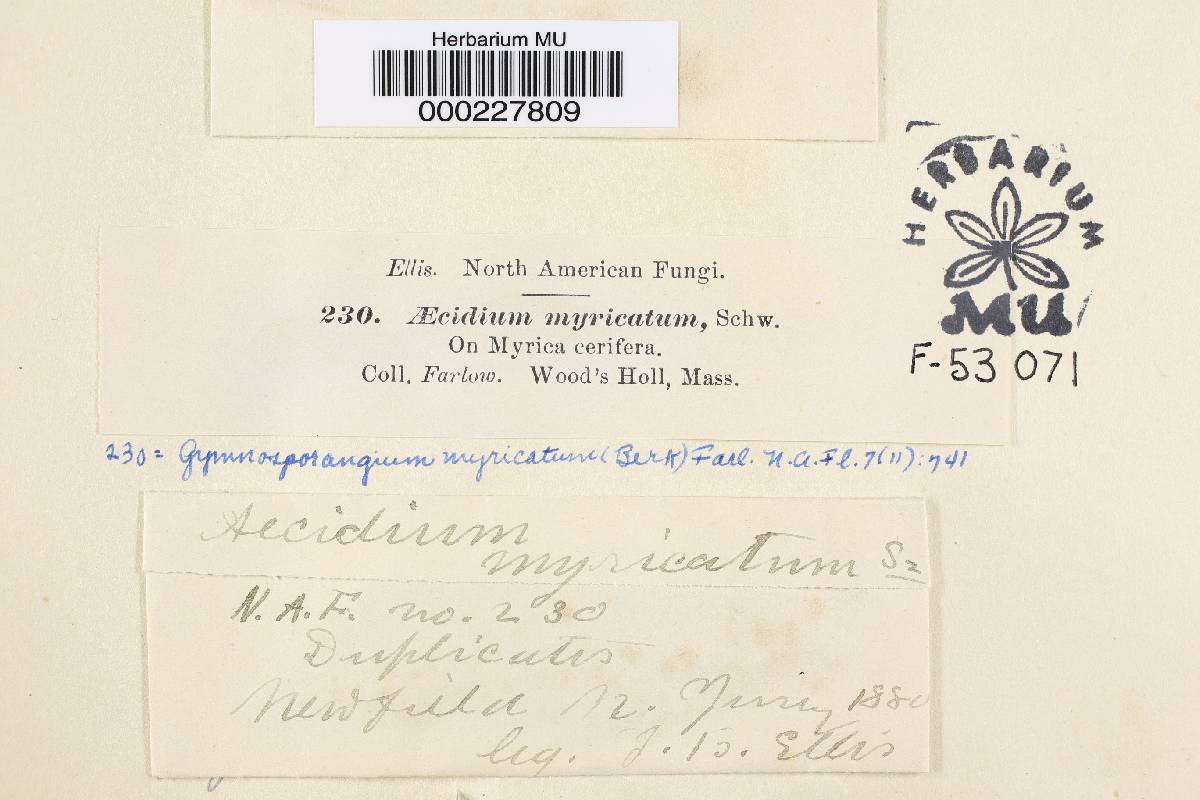 Herbarium MU
000227809
HERBARIUM
MU
F-53 071
Ellis. North American Fungi.
230. Æcidium myricatum, Schw.
On Myrica cerifera.
Coll. Farlow. Wood's Holl, Mass.
230 = Gymnosporangium myricatum (Berk) Farl. N.A.Fl. 7(11):741
Aecidium
myricatum Sz
N.A.F. no. 230
Duplicates
Newfield N. Jersey 1880
leg. J. B. Ellis